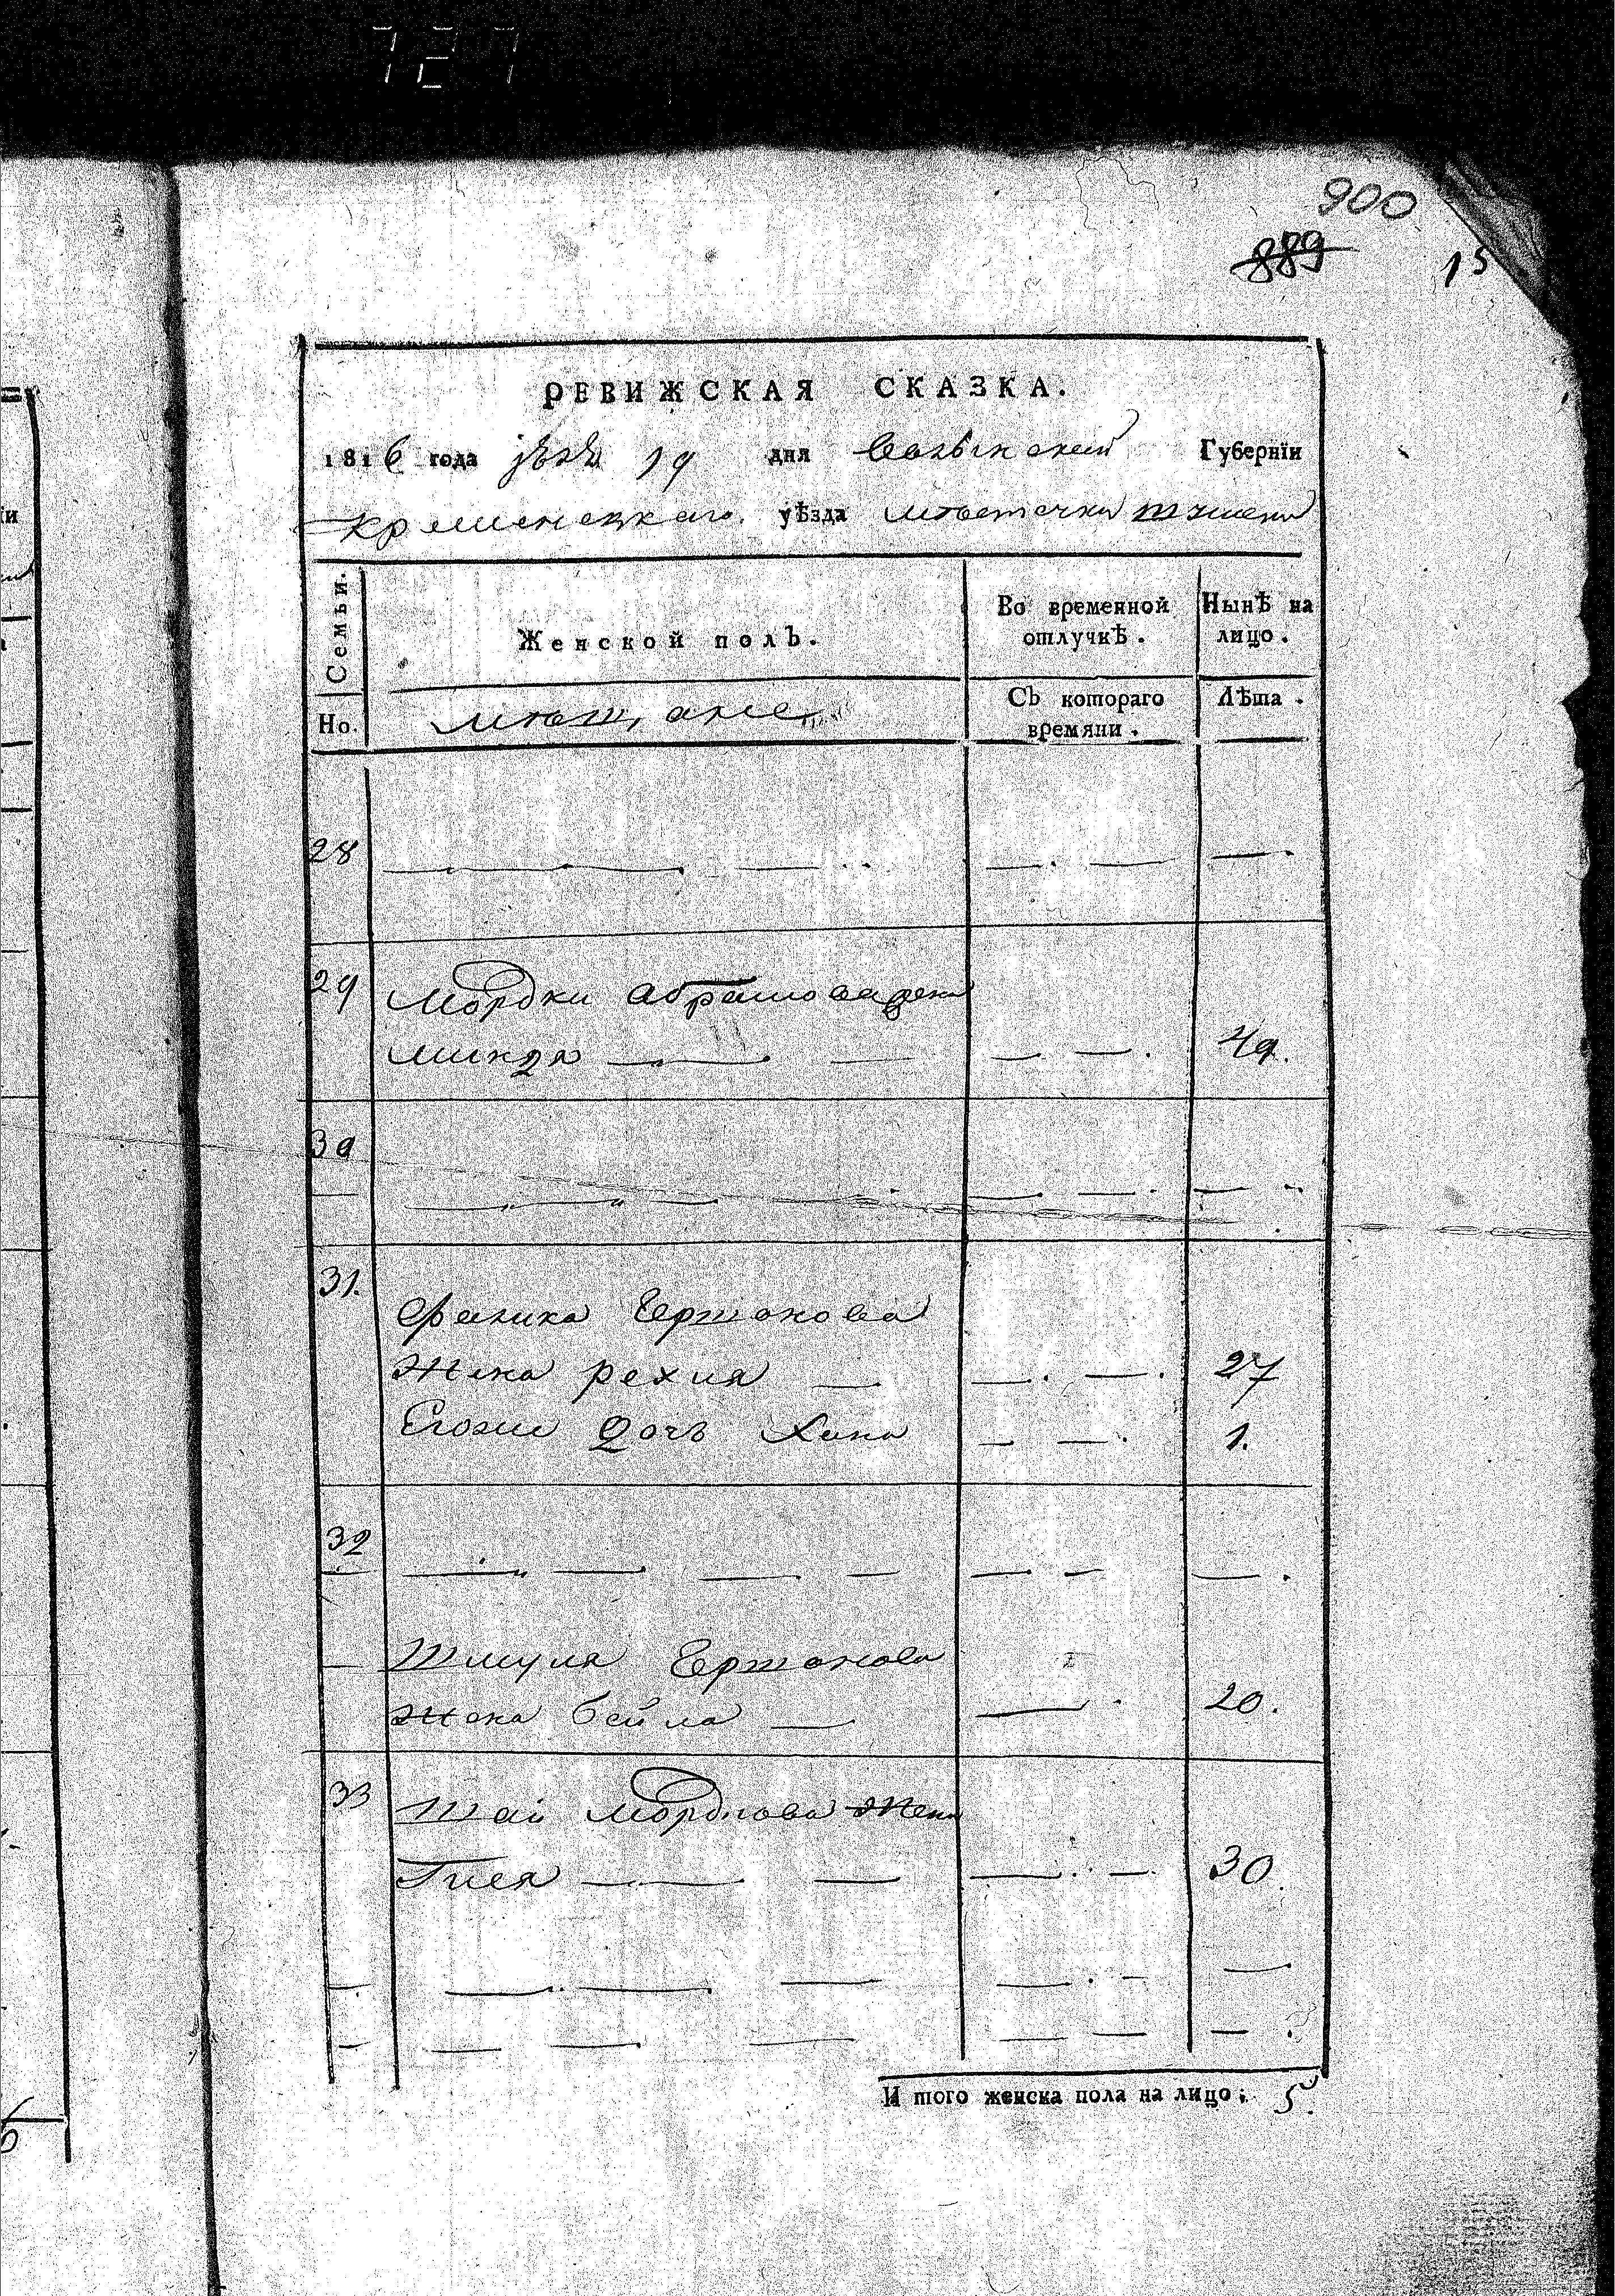 727
900
889
15
РЕВИЖСКАЯ СКАЗКА.
1816 года 19 дня волынской Губернїи
кременецкаго уѣзда мѣстечка
Семьи.
Женской полЪ.
Во временной отлучкѢ.
НынѢ на лицо.
Но.
мѣщане
СЪ котораго времяни.
ЛѢта.
28
29 Мордки абрамова жена
минда 49.
30
31.
Ершонова
Жена рехля 27
Егоже дочь Хана 1.
32
Шмуля Ершонова
жена бейла 20.
33 Мордкова жена
Гиея 30.
И того женска пола на лицо: 5.